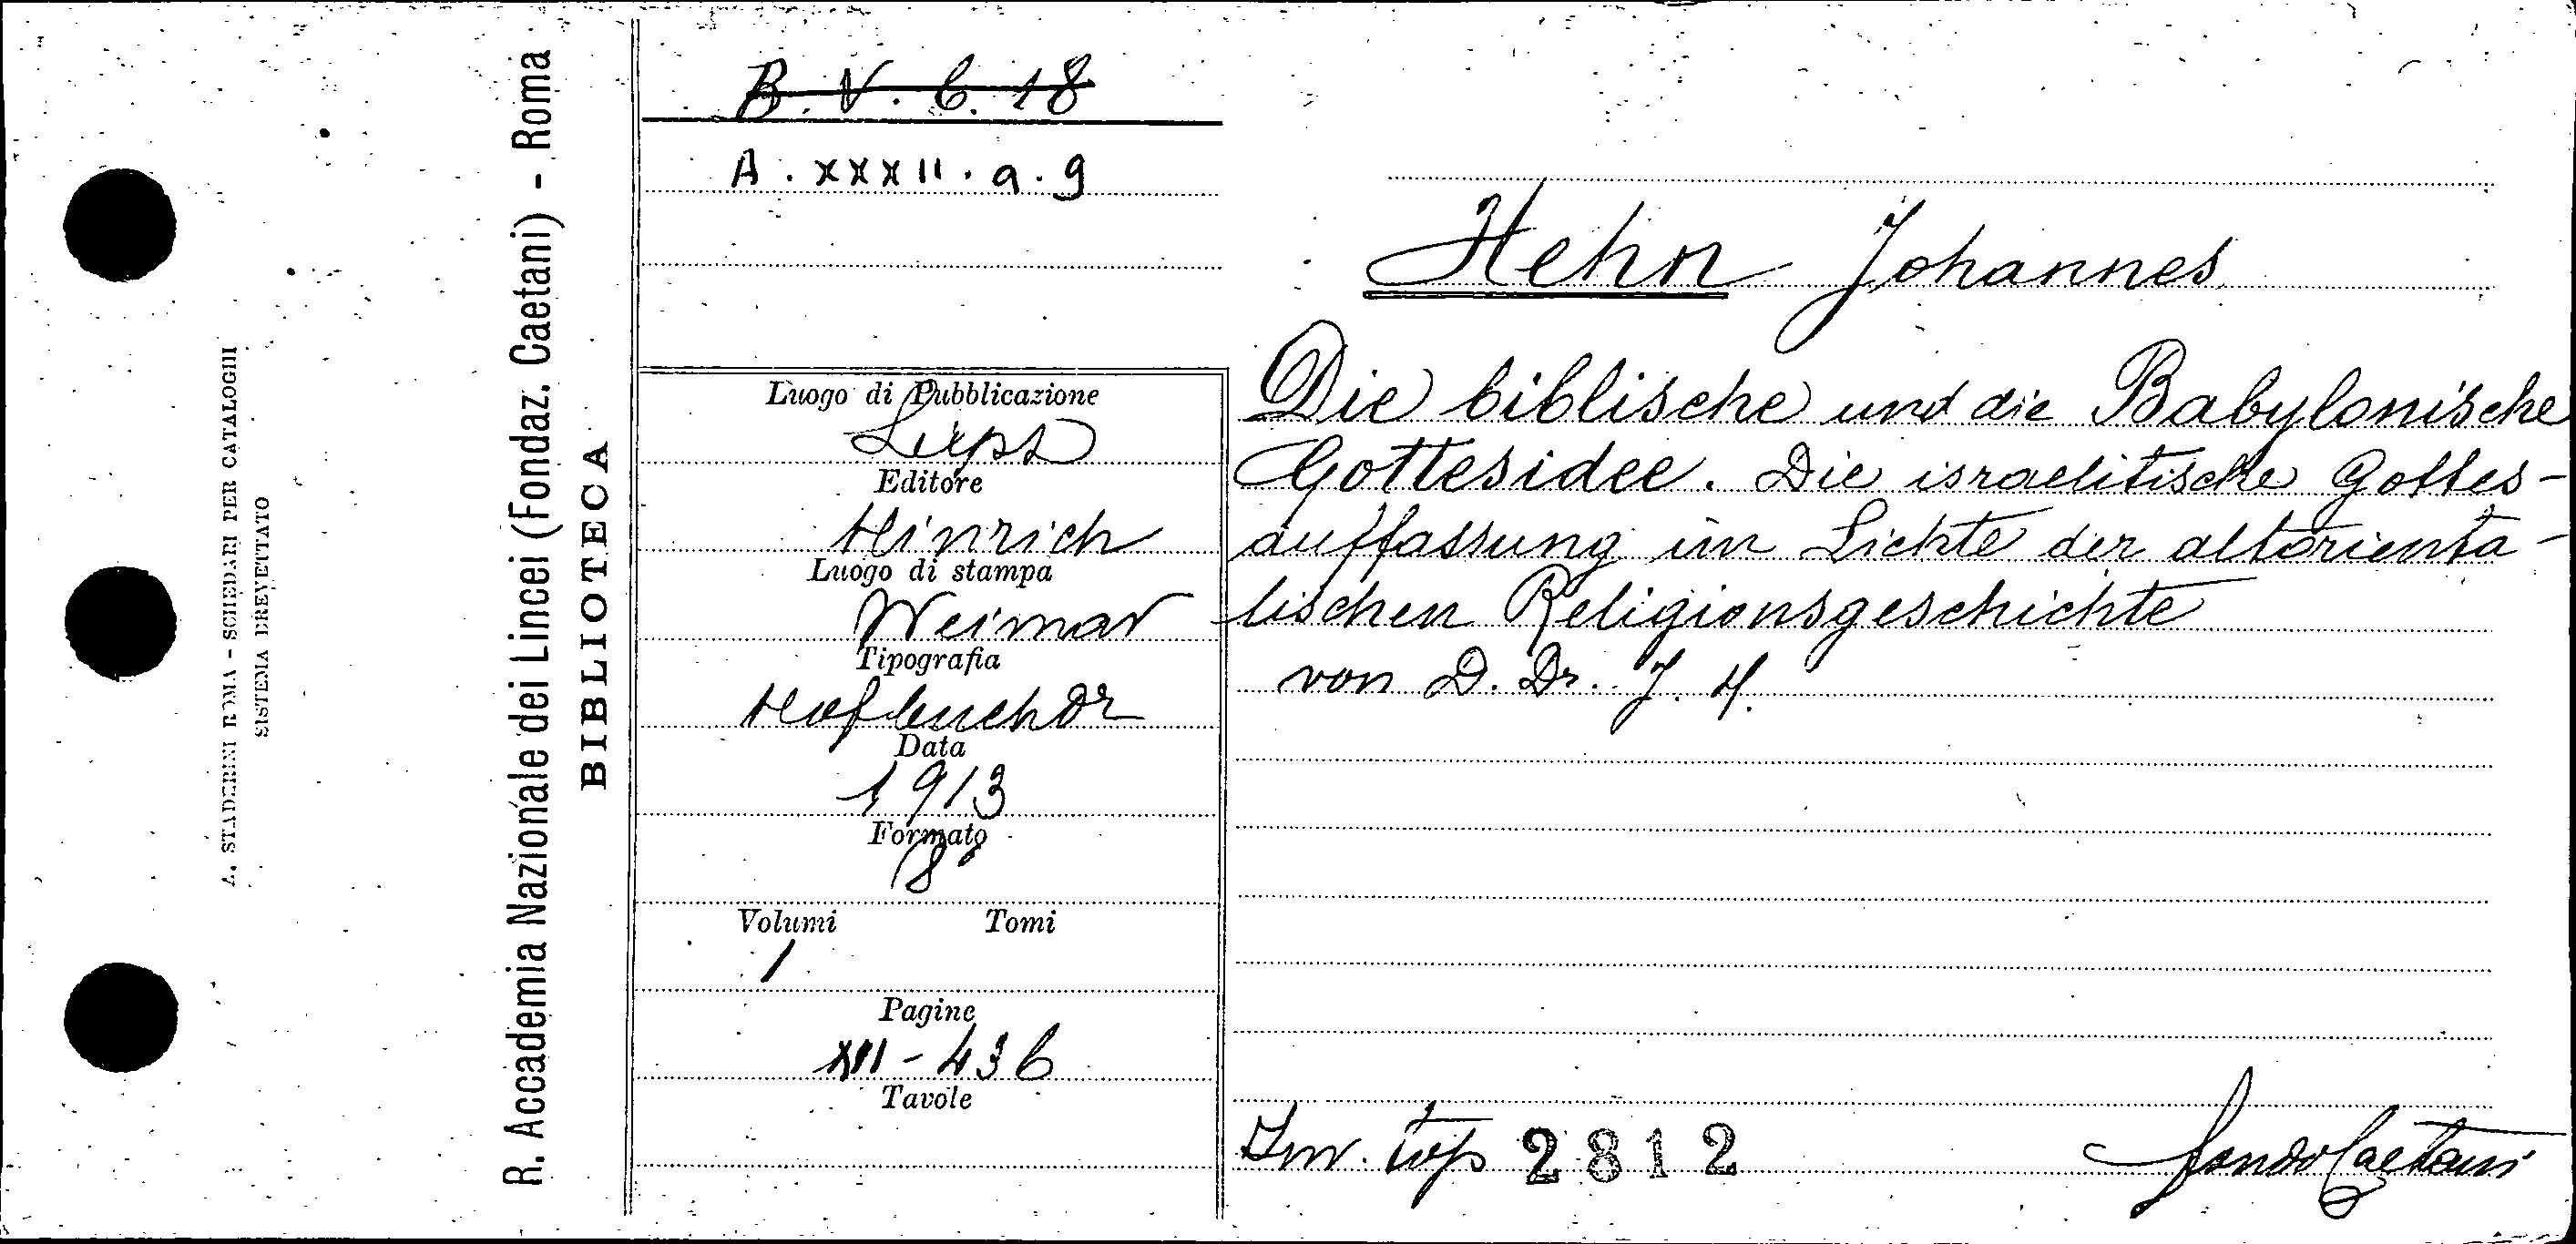 R. Accademia Nazionale dei Lincei (Fondaz. Caetani) - Roma
BIBLIOTECA
A. STADERINI ROMA - SCHEDARI PER CATALOGHI
SISTEMA BREVETTATO
B. V. 6. 18
A. XXXII. a. 9
Luogo di Pubblicazione
Leips
Editore
Hinrich
Luogo di stampa
Weimar
Tipografia
Hofbuchdr
Data
1913
Formato
8°
Volumi Tomi
1
Pagine
XII - 436
Tavole
Hehn Johannes
Die biblische und die Babylonische
Gottesidee. Die israelitische Gottes-
auffassung im Lichte der altorienta-
lischen Religionsgeschichte
von D. Dr. J. H.
Inv. top 2812
fondo Caetani